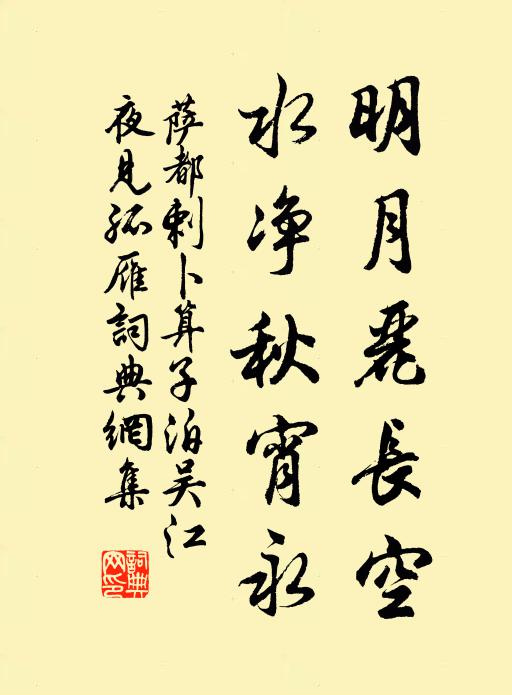 明月麗長空
水净秋宵永
萨都剌卜算子泊吴江
夜見孤雁詞典網集
詞典網印